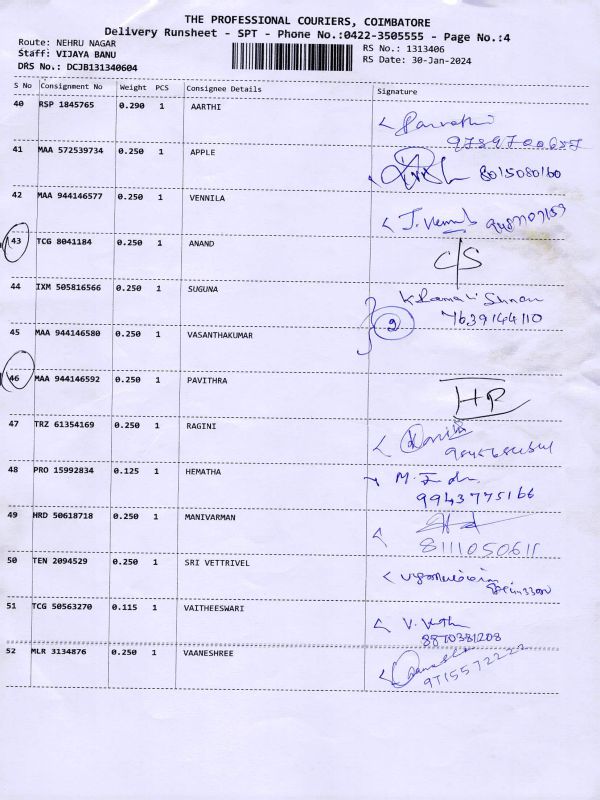 THE PROFESSIONAL COURIERS, COIMBATORE
Delivery Runsheet - SPT - Phone No.:0422-3505555 - Page No.:4
Route: NEHRU NAGAR
Staff: VIJAYA BANU
DRS No.: DCJB131340604
RS No.: 1313406
RS Date: 30-Jan-2024
S No Consignment No Weight PCS Consignee Details Signature
40 RSP 1845765 0.290 1 AARTHI
41 MAA 572539734 0.250 1 APPLE 8015080160
42 MAA 944146577 0.250 1 VENNILA
43 TCG 8041184 0.250 1 ANAND C/S
44 IXM 505816566 0.250 1 SUGUNA
7639144110
2
45 MAA 944146580 0.250 1 VASANTHAKUMAR
46 MAA 944146592 0.250 1 PAVITHRA HP
47 TRZ 61354169 0.250 1 RAGINI
48 PRO 15992834 0.125 1 HEMATHA
9943775166
49 HRD 50618718 0.250 1 MANIVARMAN
8111050611
50 TEN 2094529 0.250 1 SRI VETTRIVEL
51 TCG 50563270 0.115 1 VAITHEESWARI
8870381208
52 MLR 3134876 0.250 1 VAANESHREE
9715572222